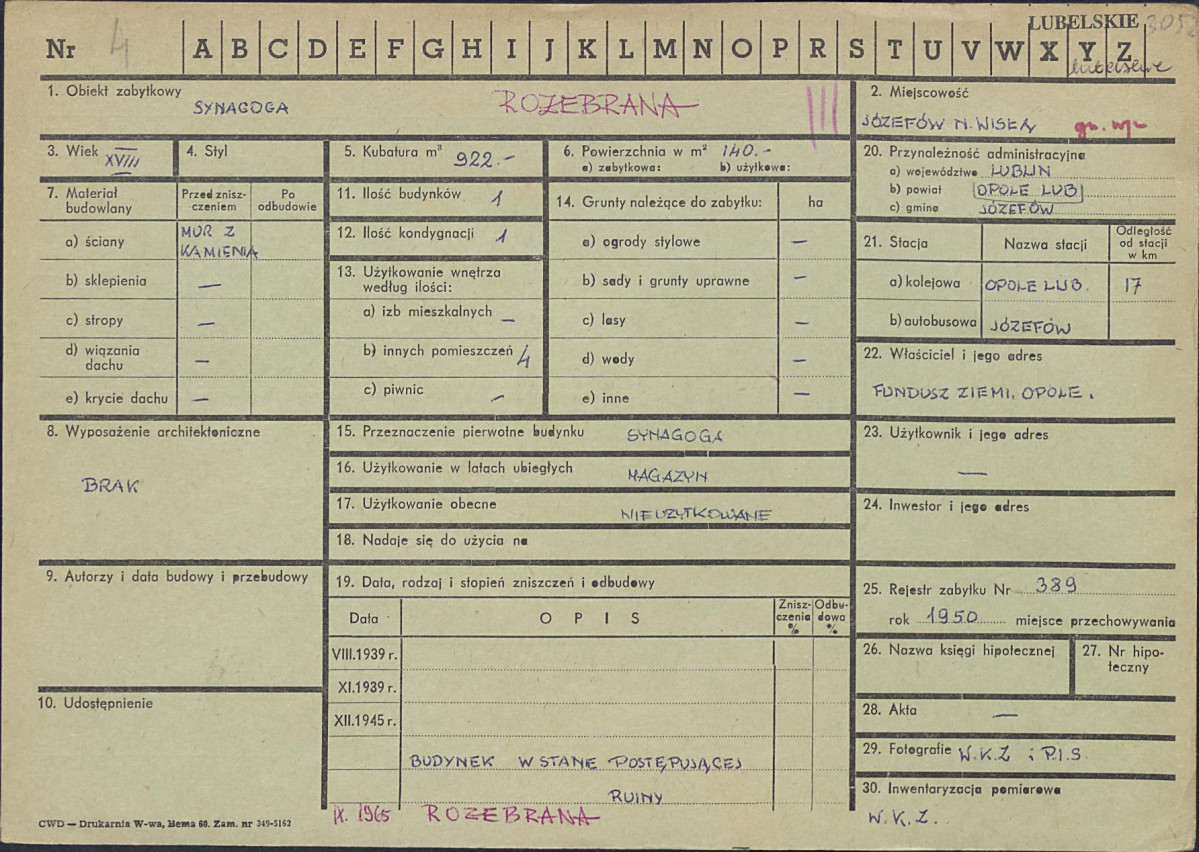 LUBELSKIE 305
Nr 4 A B C D E F G H I J K L M N O P R S T U V W X Y Z
lubelskie
1. Obiekt zabytkowy
SYNAGOGA ROZEBRANA III
2. Miejscowość
JÓZEFÓW N. WISŁĄ
3. Wiek XVIII
4. Styl
5. Kubatura m³ 922.-
6. Powierzchnia w m² 140.-
a) zabytkowa: b) użytkowa:
20. Przynależność administracyjna
a) województwo LUBLIN
b) powiat OPOLE LUB
c) gmina JÓZEFÓW
7. Materiał budowlany
Przed znisz-
czeniem
Po
odbudowie
a) ściany MUR Z
KAMIENIA
b) sklepienia —
c) stropy —
d) wiązania
dachu —
e) krycie dachu —
11. Ilość budynków 1
12. Ilość kondygnacji 1
13. Użytkowanie wnętrza
według ilości:
a) izb mieszkalnych —
b) innych pomieszczeń 4
c) piwnic —
14. Grunty należące do zabytku: ha
a) ogrody stylowe —
b) sady i grunty uprawne —
c) lasy —
d) wody —
e) inne —
21. Stacja Nazwa stacji
Odległość
od stacji
w km
a) kolejowa OPOLE LUB. 17
b) autobusowa JÓZEFÓW
22. Właściciel i jego adres
FUNDUSZ ZIEMI, OPOLE.
8. Wyposażenie architektoniczne
BRAK
15. Przeznaczenie pierwotne budynku SYNAGOGA
16. Użytkowanie w latach ubiegłych MAGAZYN
17. Użytkowanie obecne NIEUŻYTKOWANE
18. Nadaje się do użycia na
23. Użytkownik i jego adres
—
24. Inwestor i jego adres
9. Autorzy i data budowy i przebudowy
19. Data, rodzaj i stopień zniszczeń i odbudowy
Data O P I S
Znisz-
czenia
%
Odbu-
dowa
%
VIII.1939 r.
XI.1939 r.
XII.1945 r.
BUDYNEK W STANE POSTĘPUJĄCEJ
RUINY
IX. 1965 ROZEBRANA
25. Rejestr zabytku Nr 389
rok 1950 miejsce przechowywania
26. Nazwa księgi hipotecznej
27. Nr hipo-
teczny
10. Udostępnienie
28. Akta —
29. Fotografie W.K.Z i P.I.S.
30. Inwentaryzacja pomiarowa
W.K.Z.
CWD — Drukarnia W-wa, Bema 60. Zam. nr 349-5162